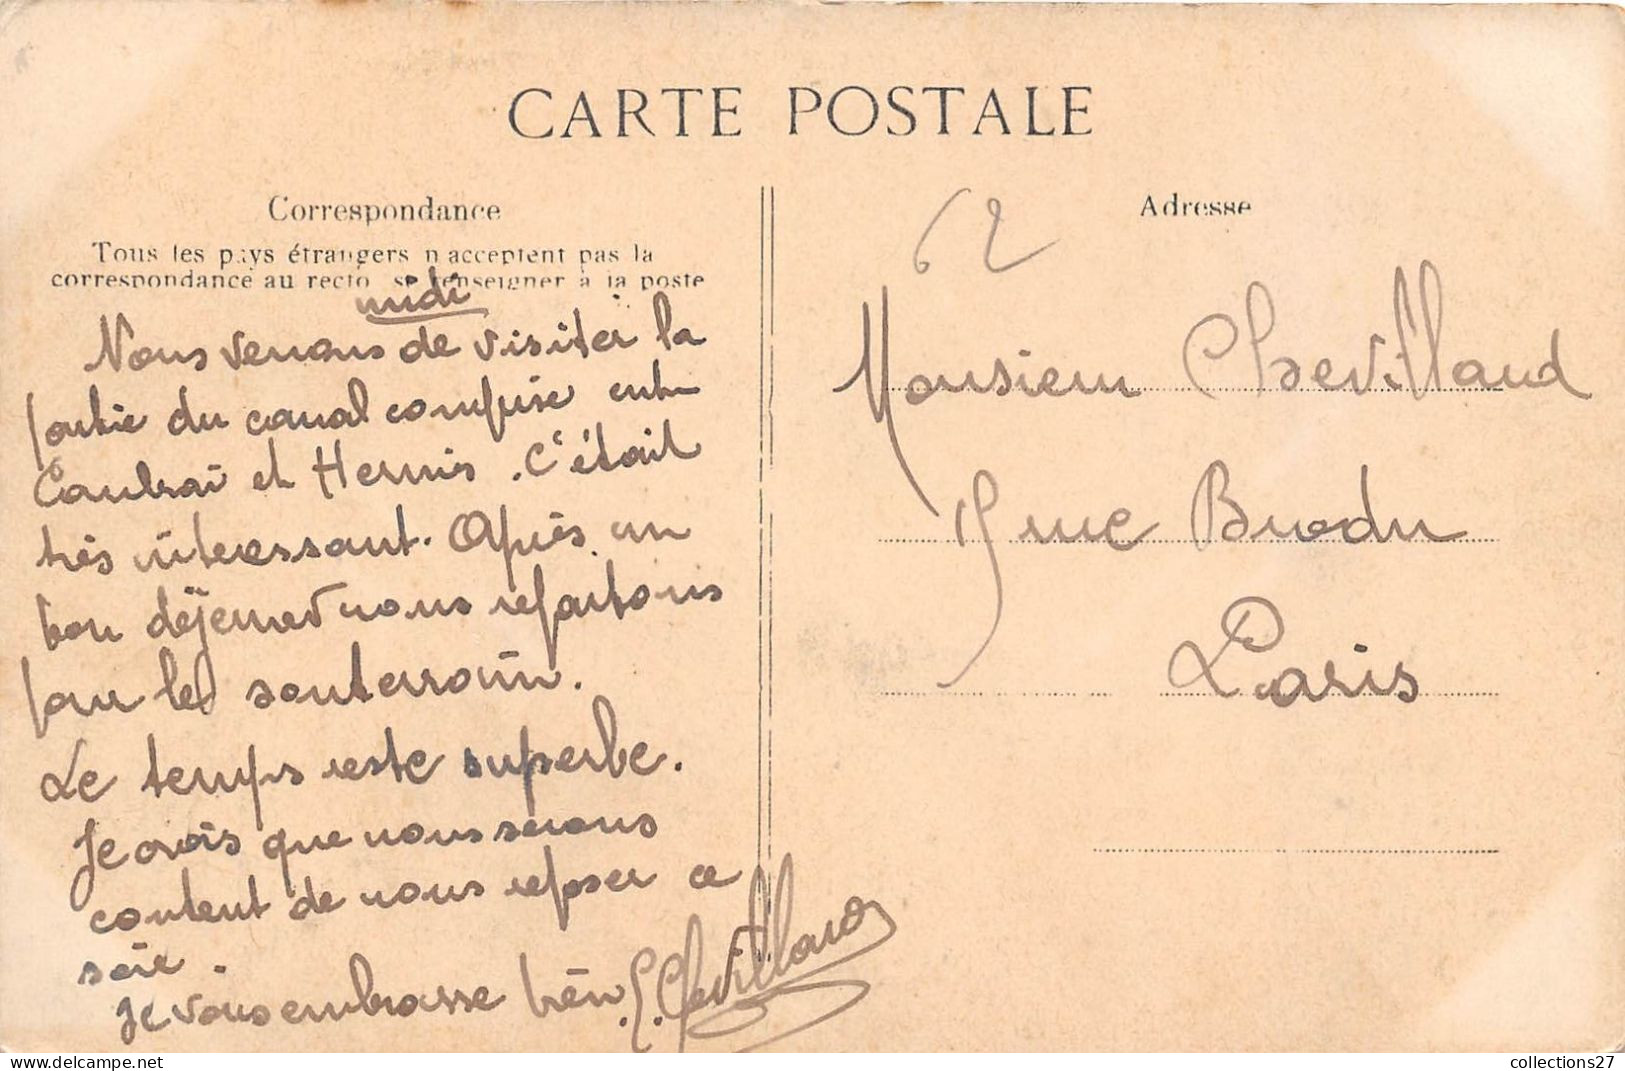 CARTE POSTALE
Correspondance
Tous les pays étrangers n'acceptent pas la
correspondance au recto, se renseigner à la poste
midi
Nous venons de visiter la
partie du canal comprise entre
Cambrai et . C'était
très intéressant. Après un
bon déjeuner nous repartons
par le souterrain.
Le temps reste superbe.
Je crois que nous serons
content de nous reposer ce
soir.
Je vous embrasse bien
E. Chevillard
Adresse
62
Monsieur Chevillard
9 rue Bródu
Paris
collections27